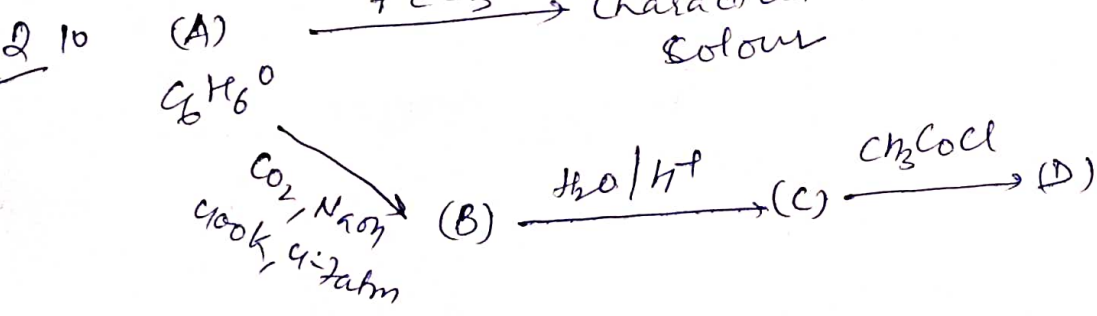 Q 10 (A) → Colour
C6H6O
CO2, NaOH
400K, 4-7atm
(B) H2O/H+ → (C) CH3COCl → (D)